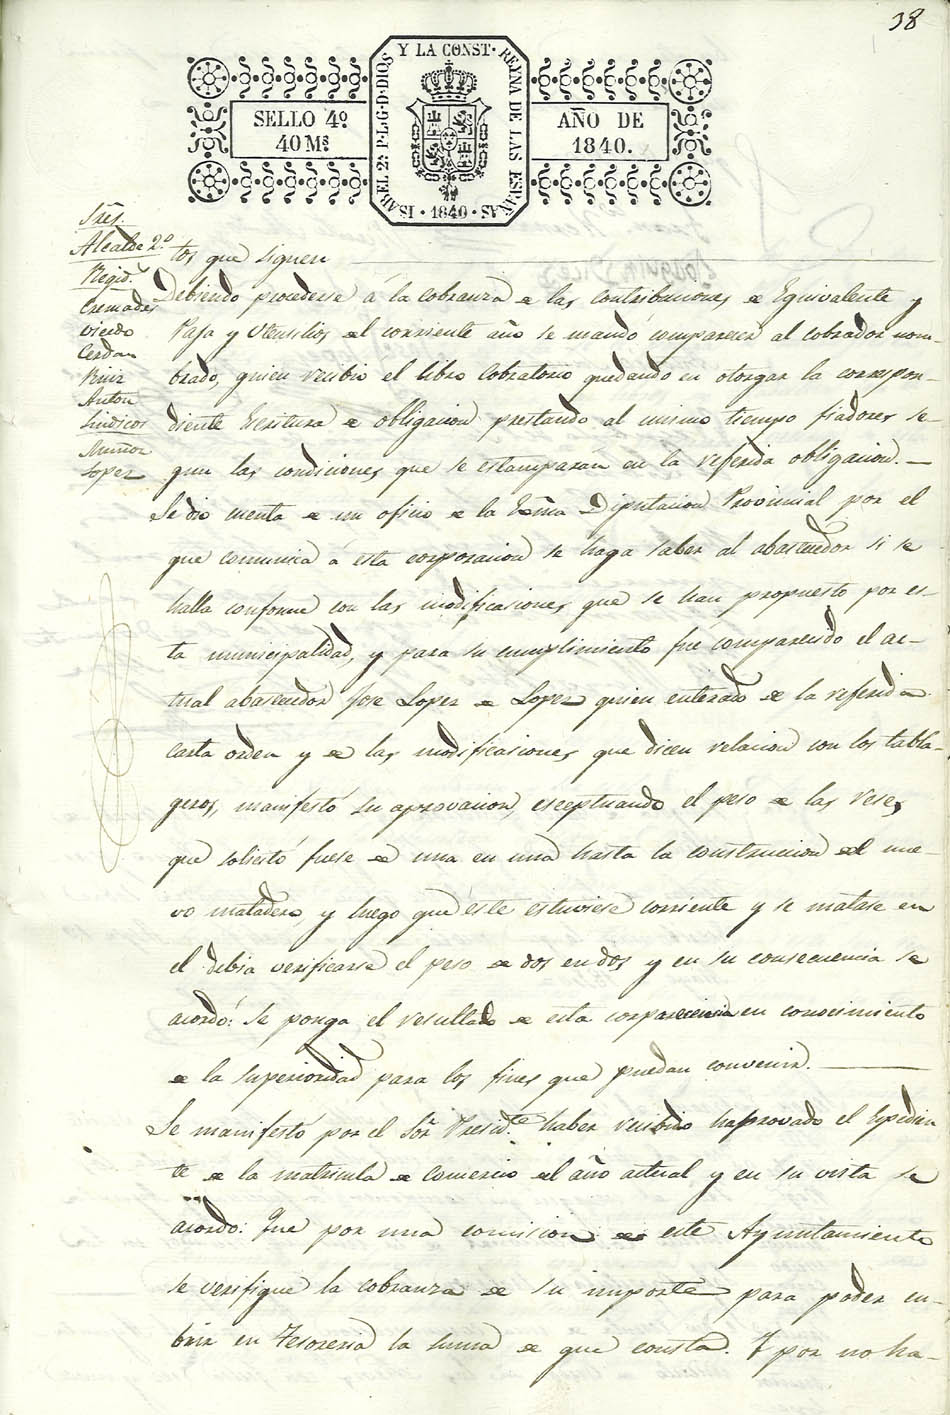 38
ISABEL 2ª P.L.G.D.DIOS Y LA CONST. REYNA DE LAS ESPAÑAS
SELLO 4º
40 Mˢ
AÑO DE
1840.
1840
Sres.
Alcalde 2.º
Regid.s
Cremades
Viedo
Cerdan
Ruiz
Anton
Sindicos
Muñoz
Lopez
tos que siguen
Debiendo procederse á la cobranza de las contribuciones de Equivalente y
Paja y Utensilios del corriente año se mandó comparecer al cobrador nom-
brado, quien recibio el libro Cobratorio quedando en otorgar la correspon-
diente Escritura de obligacion prestando al mismo tiempo fiadores se-
gun las condiciones que se estamparán en la referida obligacion.
Se dio cuenta de un oficio de la Exma Diputacion Provincial por el
que comunica á esta corporacion se haga saber al abastecedor si se
halla conforme con las modificasiones que se han propuesto por es-
ta municipalidad, y para su cumplimiento fue comparecido el ac-
tual abastecedor Jose Lopez de Lopez quien enterado de la referida
carta orden y de las modificasiones que dicen relacion con los tabla-
geros, manifestó su aprovacion, esceptuando el peso de las reses
que solicitó fuese de una en una hasta la construccion del nue-
vo matadero, y luego que este estuviese corriente y se matase en
el debia verificarse el peso de dos en dos y en su consecuencia se
acordó: Se ponga el resultado de esta comparecencia en conocimiento
de la superioridad para los fines que puedan convenir.
Se manifestó por el Sor Presid.te haber recibido haprovado el Espedien
te de la matricula de comercio del año actual y en su vista se
acordo: Que por una comision de este Ayuntamiento
se verifique la cobranza de su importe para poder cu-
brir en Tesoreria la suma de que consta. Y por no ha-